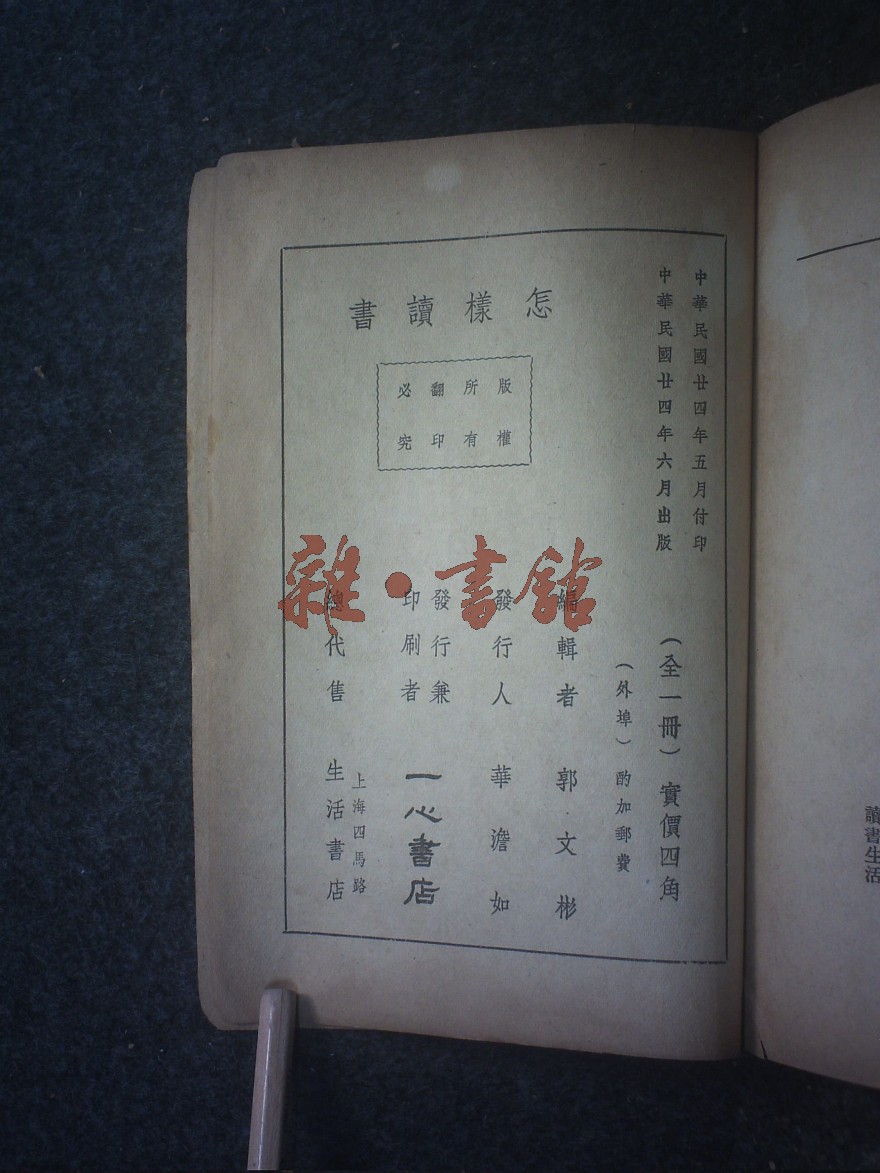 中華民國廿四年五月付印
中華民國廿四年六月出版
怎樣讀書
版權
所有
翻印
必究
(全一冊)實價四角
(外埠)酌加郵費
編輯者 郭文彬
發行人 華澹如
發行兼
印刷者 一心書店
總代售 上海四馬路
生活書店
雜·書館
讀書生活